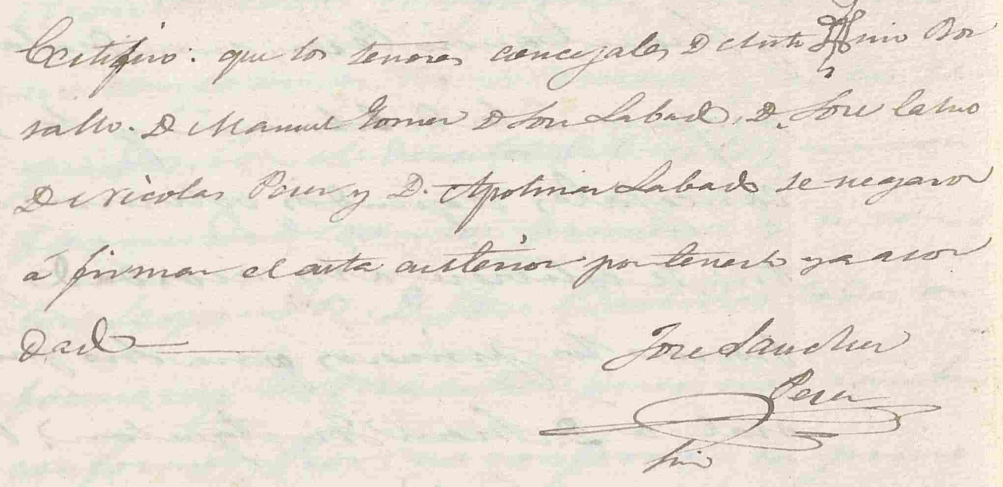 Certifico: que los señores concejales D. Anto Bor
rallo. D. Manuel Gomez D. José Labado, D. José
D. Nicolas Perez y D. Apolinar Labado se negaron
á firmar el acta anterior por tenerlo ya acor
dado
Jose Sanchez
Perez